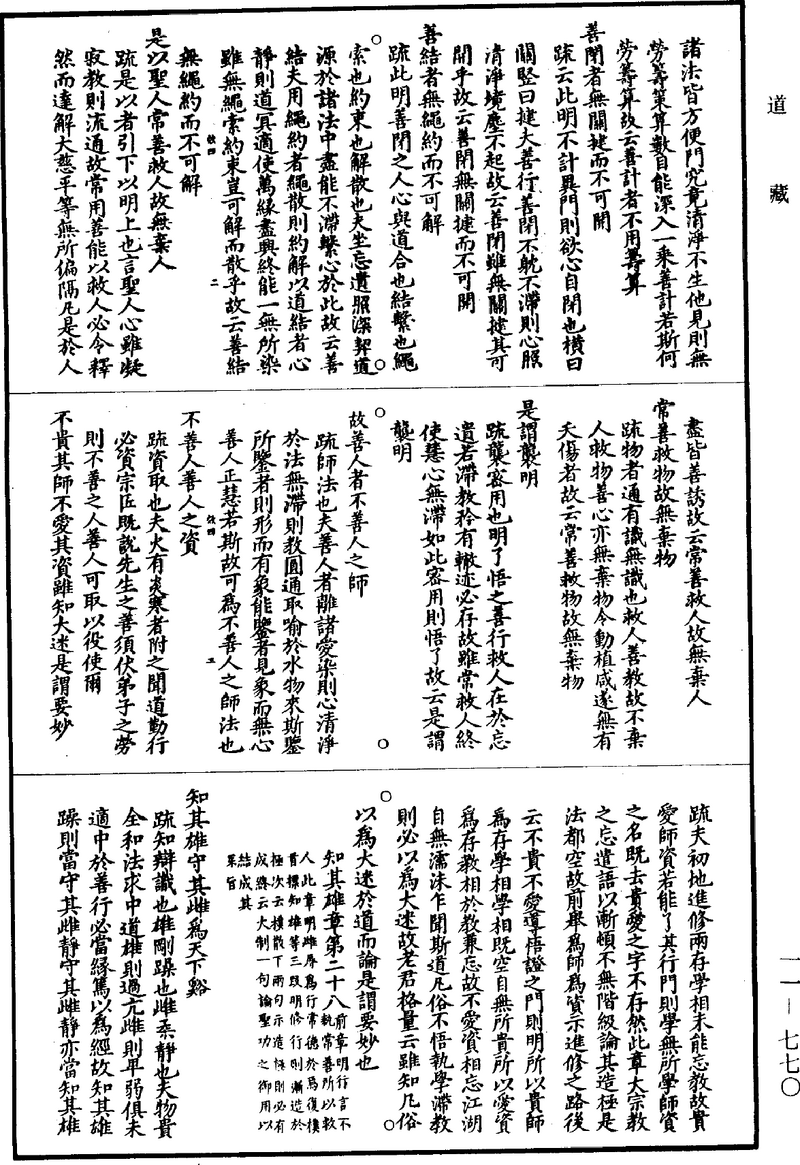 道藏
諸法皆方便門究竟清淨不生他見則無
勞籌策算數自能深入一乘善計若斯何
勞籌算故云善計者不用籌算
善閉者無關揵而不可開
疏云此明不計異門則欲心自閉也橫曰
關竪曰揵夫善行善閉不躭不滯則心照
清淨境塵不起故云善閉雖無關揵其可
開乎故云善閉無關揵而不可開
善結者無繩約而不可解
疏此明善閉之人心與道合也結繫也繩
索也約束也解散也夫坐忘遺照深契道
源於諸法中盡能不滯繫心於此故云善
結夫用繩約者繩散則約解以道結者心
靜則道冥適使萬緣盡興終能一無所染
雖無繩索約束豈可解而散乎故云善結
無繩約而不可解
是以聖人常善救人故無棄人
疏是以者引下以明上也言聖人心雖凝
寂教則流通故常用善能以救人必令釋
然而達解大慈平等無所偏隔凡是於人
盡皆善誘故云常善救人故無棄人
常善救物故無棄物
疏物者通有識無識也救人善教故不棄
人救物善心亦無棄物令動植咸遂無有
夭傷者故云常善救物故無棄物
是謂襲明
疏襲密用也明了悟之善行救人在於忘
遺若滯教矜有轍迹必存故雖常救人終
使慧心無滯如此密用則悟了故云是謂
襲明
故善人者不善人之師
疏師法也夫善人者離諸愛染則心清淨
於法無滯則教圓通取喻於水物來斯鑒
所鑒者則形而有象能鑒者見象而無心
善人正慧若斯故可為不善人之師法也
不善人善人之資
疏資取也夫火有炎寒者附之聞道勤行
必資宗匠既說先生之善須伏弟子之勞
則不善之人善人可取以役使爾
不貴其師不愛其資雖知大迷是謂要妙
疏夫初地進修兩存學相未能忘教故貴
愛師資若能了其行門則學無所學師資
之名既去貴愛之字不存然此章大宗教
之忘遺語以漸頓不無階級論其造極是
法都空故前舉為師為資示進修之路後
云不貴不愛導悟證之門則明所以貴師
為存學相學相既空自無所貴所以愛資
為存教相於教兼忘故不愛資相忘江湖
自無濡沫乍聞斯道凡俗不悟執學滯教
則必以為大迷故老君格量云雖知凡俗
以為大迷於道而論是謂要妙也
知其雄章第二十八 前章明行言不執常善所以救
人此章明雌辱為行常德於焉復樸
首標知雄等三段明修行則漸造於
極次云樸散下兩句示造極則必有
成終云大制一句論聖功之御用以
結成其
旨
知其雄守其雌為天下谿
疏知辯識也雄剛躁也雌柔靜也夫物貴
全和法求中道雄則過亢雌則卑弱俱未
適中於善行必當緣篤以為經故知其雄
躁則當守其雌靜守其雌靜亦當知其雄
一一－七七〇